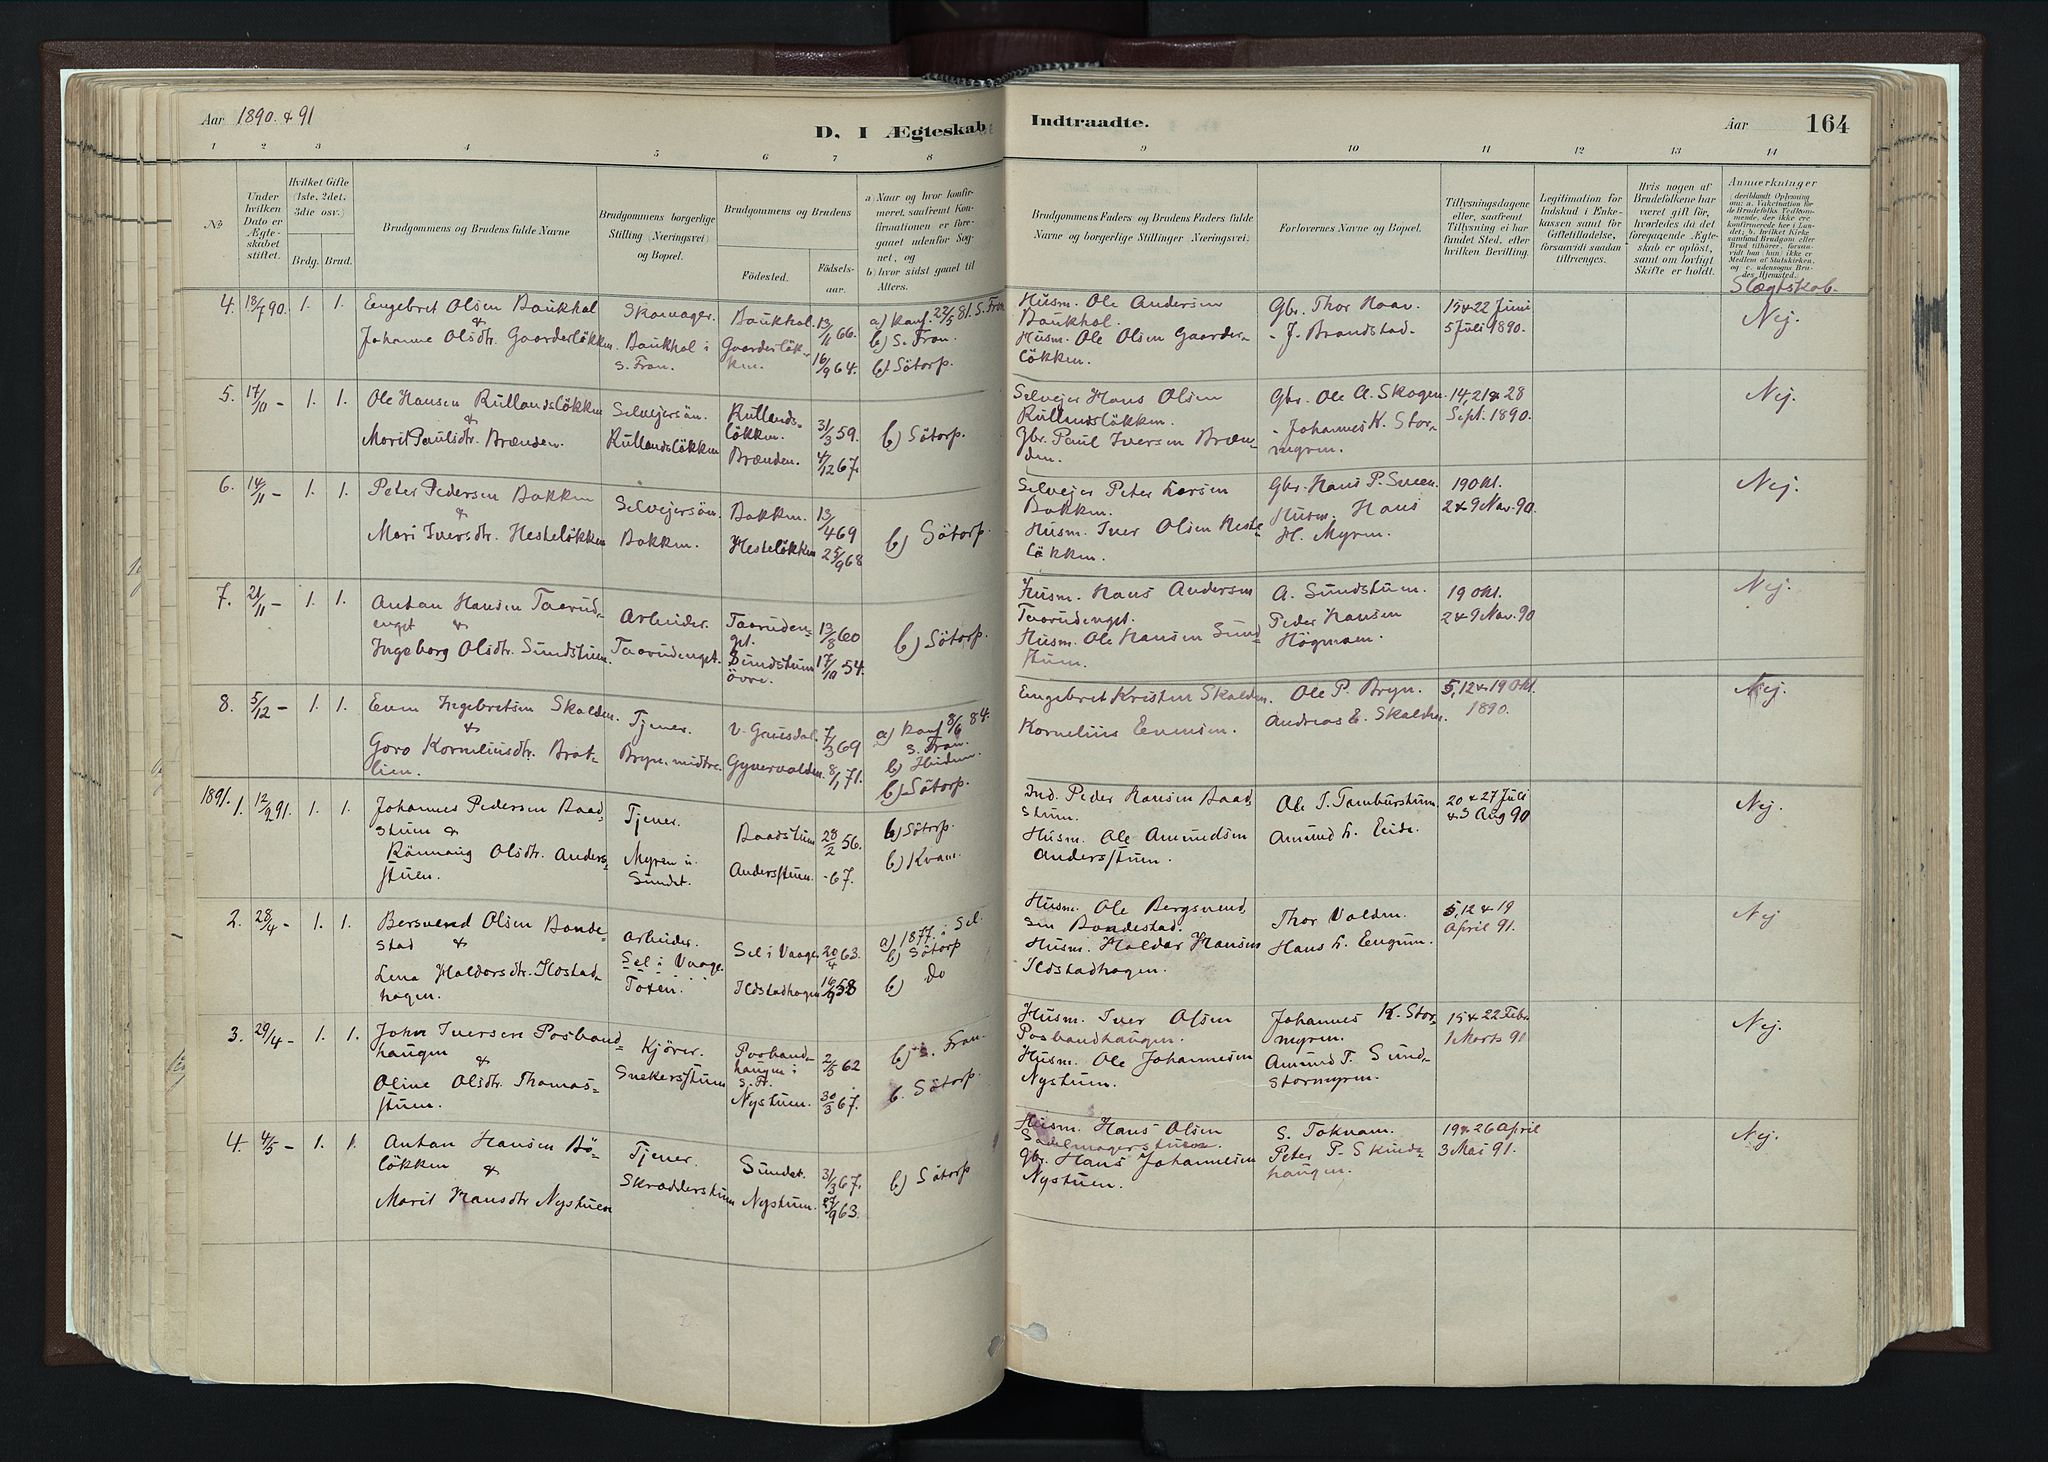 Aar 1890 & 91
D. I Ægteskab
Indtraadte.
Aar
164
1 2 3 4 5 6 7 8
9 10 11 12 13 14
No
Under hvilken Dato er Ægteskabet stiftet.
Hvilket Gifte (1ste, 2det, 3die osv.)
Brdg. Brud.
Brudgommens og Brudens fulde Navne
Brudgommens borgerlige Stilling (Næringsvei) og Bopæl.
Brudgommens og Brudens
Fødested.
Fødselsaar.
a) Naar og hvor konfirmeret, saafremt Konfirmationen er foregaaet udenfor Sognet, og
b) hvor sidst gaaet til Alters.
Brudgommens Faders og Brudens Faders fulde Navne og borgerlige Stillinger (Næringsvei).
Forlovernes Navne og Bopæl.
Tillysningsdagene eller, saafremt Tillysning ei har fundet Sted, efter hvilken Bevilling.
Legitimation for Indskud i Enkekassen samt for Giftetilladelse, forsaavidt saadan tiltrænges.
Hvis nogen af Brudefolkene har været gift før, hvorledes da det foregaaende Ægteskab er opløst, samt om lovligt Skifte er holdt.
Anmerkninger
Slægtskab.
4. 18/7 90. 1. 1.
Engebret Olsen Baukhol
&
Johanne Olsdtr. Gaarderløkken.
Skomager.
Baukhol i
S. Fron.
Baukhol.
Gaarderløkken.
13/11 66.
16/9 64.
a) Konf. 22/5 81. S. Fron
b) S. Fron.
b) Sötorp.
Husm. Ole Andersen
Baukhol.
Husm. Ole Olsen Gaarderløkken.
Gbr. Thor Haav.
- J. Brandstad.
15 & 22 Juni
5 Juli 1890.
Nej.
5. 17/10 - 1. 1.
Ole Hansen Rullandsløkken
&
Marit Paulsdtr. Brænden.
Selvejersön.
Rullandsløkken
Rullandsløkken.
Brænden.
31/3 59.
4/12 67.
b) Sötorp.
Selvejer Hans Olsen
Rullandsløkken.
Gbr. Paul Iversen Brænden.
Gbr. Ole A. Skogen.
- Johannes K. Stormyren.
14, 21 & 28
Sept. 1890.
Nej.
6. 14/11 - 1. 1.
Peter Pedersen Bakken
&
Mari Iversdtr. Hesteløkken
Selvejersön.
Bakken.
Bakken.
Hesteløkken
13/4 69
25/9 68
b) Sötorp.
Selvejer Peter Larsen
Bakken.
Husm. Iver Olsen Hesteløkken.
Gbr. Hans P. Sveen.
Husm. Hans
H. Myren.
19 Okt.
2 & 9 Nov. 90.
Nej.
7. 21/11 - 1. 1.
Anton Hansen Taarudenget
&
Ingeborg Olsdtr. Sundstuen.
Arbeider.
Taarudenget.
Taarudenget.
Sundstuen
övre.
13/8 60
17/10 54.
b) Sötorp.
Husm. Hans Andersen
Taarudenget.
Husm. Ole Hansen Sundstuen.
A. Sundstuen.
Peder Hansen
Högmoen.
19 Okt.
2 & 9 Nov. 90
Nej.
8. 5/12 - 1. 1.
Even Ingebretsen Skalden.
&
Goro Korneliusdtr. Bratlien.
Tjener.
Bryn. midtre.
V. Gausdal.
Gyvervolden.
7/3 69
8/1 71.
a) Konf 8/6 84.
S. Fron.
b) Hidem.
b) Sötorp.
Engebret Kristen Skalden.
Kornelius Evensen.
Ole P. Bryn.
Andreas E. Skalden.
5, 12 & 19 Okt.
1890.
Nej.
1891. 1. 12/2 91. 1. 1.
Johannes Pedersen Baadstuen
&
Rönnaug Olsdtr. Andersstuen.
Tjener.
Myren u.
Sundet.
Baadstuen
Andersstuen.
28/2 56.
- 67.
b) Sötorp.
b) Kvam.
Ind. Peder Hansen Baadstuen.
Husm. Ole Amundsen
Andersstuen.
Ole T. Tamburstuen.
Amund L. Eide.
20 & 27 Juli
& 3 Aug 90
Nej.
2. 28/4 - 1. 1.
Bersvend Olsen Bondestad
&
Lena Haldorsdtr. Ilostadhagen.
Arbeider.
Sel i Vaage.
Toxen.
Sel i Vaage
Ildstadhagen
20/4 63.
16/9 58
a) 1877. i Sel.
b) Sötorp
b) Do
Husm. Ole Bergsvendsen Bondestad.
Husm. Haldor Hansen
Ildstadhagen.
Thor Volden.
Hans L. Engum.
5, 12 & 19
April 91.
Nej
3. 29/4 - 1. 1.
John Iversen Posbandhaugen
&
Oline Olsdtr. Thomasstuen.
Kjörer.
Snekersstuen
Posbandhaugen i
S. Fr.
Nystuen.
2/5 62
30/3 67.
b) S. Fron.
b. Sötorp.
Husm. Iver Olsen
Posbandhaugen.
Husm. Ole Johannesen
Nystuen.
Johannes K. Stormyren.
Amund T. Sundstormyren.
15 & 22 Febr.
1 Marts 91
Nej.
4. 4/5 - 1. 1.
Anton Hansen Böløkken
&
Marit Hansdtr Nystuen
Tjener.
Skrædderstuen
Sundet.
Nystuen.
31/3 67.
27/9 63.
b) Sötorp
Husm. Hans Olsen
Sadelmagerstuen.
Gbr. Hans Johannesen
Nystuen.
S. Toknam.
Peter P. Skindhaugen.
19 & 26 April
3 Mai 91.
Nej.